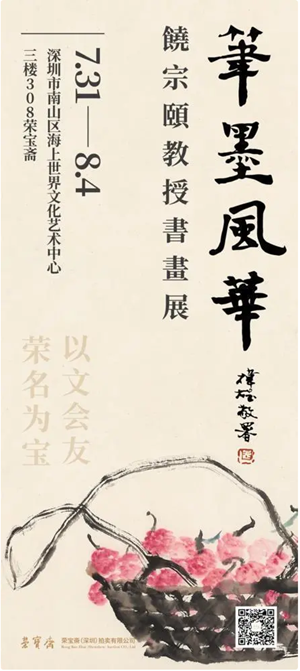 筆墨風華
饒宗頤教授書畫展
7.31—8.4
深圳市南山区海上世界文化艺术中心
三楼308荣宝斋
以文会友
荣名为宝
榮寶齋
荣宝斋(深圳)拍卖有限公司